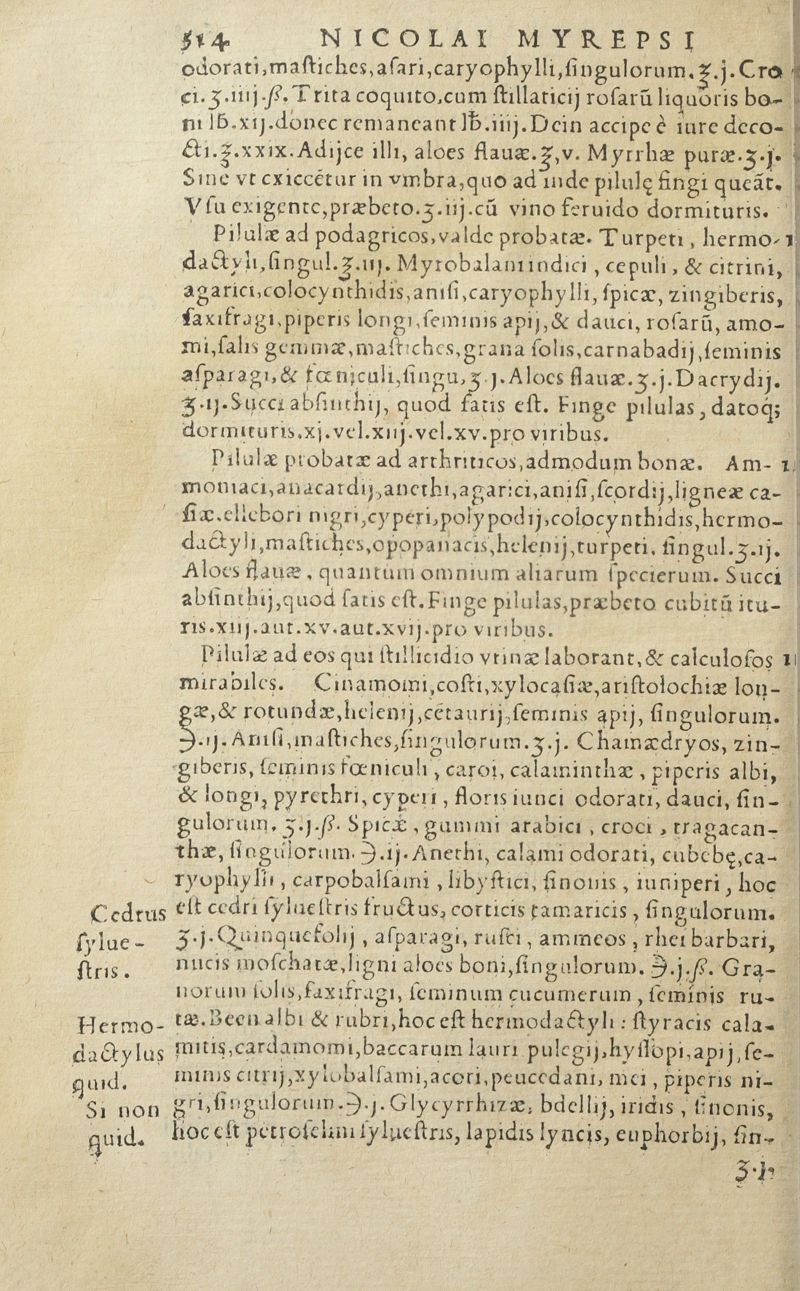 514 NICOLAI MYREPSI
odorati,maſtiches,aſari,caryophylli,ſingulorum.℥.j.Cro
ci.ʒ.iiij.ß.Trita coquito,cum ſtillaticij roſarũ liquoris bo-
ni lb.xij.donec remaneant lb.iiij.Dein accipe è iure deco-
cti.℥.xxix.Adijce illi, aloes flauæ.℥,v. Myrrhæ puræ.ʒ.j.
Sine vt exiccẽtur in vmbra,quo ad inde pilulę fingi queãt.
Vſu exigente,præbeto.ʒ.iij.cũ vino feruido dormituris.
Pilulæ ad podagricos,valde probatæ. Turpeti, hermo-
dactyli,ſingul.℥.iij. Myrobalani indici, cepuli, & citrini,
agarici,colocynthidis,aniſi,caryophylli, ſpicæ, zingiberis,
ſaxifragi,piperis longi,ſeminis apij,& dauci, roſarũ, amo-
mi,ſalis gemmæ,maſtiches,grana ſolis,carnabadij,ſeminis
aſparagi,& fœniculi,ſingu,ʒ.j.Aloes flauæ.ʒ.j.Dacrydij.
ʒ.ij.Succi abſinthij, quod ſatis eſt. Finge pilulas, datoq;
dormituris.xj.vel.xiij.vel.xv.pro viribus.
Pilulæ probatæ ad arthriticos,admodum bonæ. Am-
moniaci,anacardij,anethi,agarici,aniſi,ſcordij,ligneæ ca-
ſiæ.ellebori nigri,cyperi,polypodij,colocynthidis,hermo-
dactyli,maſtiches,opopanacis,helenij,turpeti, ſingul.ʒ.ij.
Aloes flauæ, quantum omnium aliarum ſpecierum. Succi
abſinthij,quod ſatis eſt.Finge pilulas,præbeto cubitũ itu-
ris.xiij.aut.xv.aut.xvij.pro viribus.
Pilulæ ad eos qui ſtillicidio vrinæ laborant,& calculoſos
mirabiles. Cinamomi,coſti,xylocaſiæ,ariſtolochiæ lon-
gæ,& rotundæ,helenij,cẽtaurij,ſeminis apij, ſingulorum.
℈.ij.Aniſi,maſtiches,ſingulorum.ʒ.j. Chamædryos, zin-
giberis, ſeminis fœniculi, caroi, calaminthæ, piperis albi,
& longi, pyrethri, cyperi, floris iunci odorati, dauci, ſin-
gulorum. ʒ.j.ß. Spicæ, gummi arabici, croci, tragacan-
thæ, ſingulorum. ℈.ij.Anethi, calami odorati, cubebę,ca-
ryophylli, carpobalſami, libyſtici, ſinonis, iuniperi, hoc
Cedrus eſt cedri ſylueſtris fructus, corticis tamaricis, ſingulorum.
ſylue- ʒ.j.Quinquefolij, aſparagi, ruſci, ammeos, rhei barbari,
ſtris. nucis moſchatæ,ligni aloes boni,ſingulorum. ℈.j.ß. Gra-
norum ſolis,ſaxifragi, ſeminum cucumerum, ſeminis ru-
Hermo- tæ.Been albi & rubri,hoc eſt hermodactyli: ſtyracis cala-
dactylus mitis,cardamomi,baccarum lauri pulegij,hyſſopi,apij,ſe-
quid. minis citrij,xylobalſami,acori,peucedani, mei, piperis ni-
Si non gri,ſingulorum.℈.j.Glycyrrhizæ, bdellij, iridis, ſinonis,
quid. hoc eſt petroſelini ſylueſtris, lapidis lyncis, euphorbij, ſin-